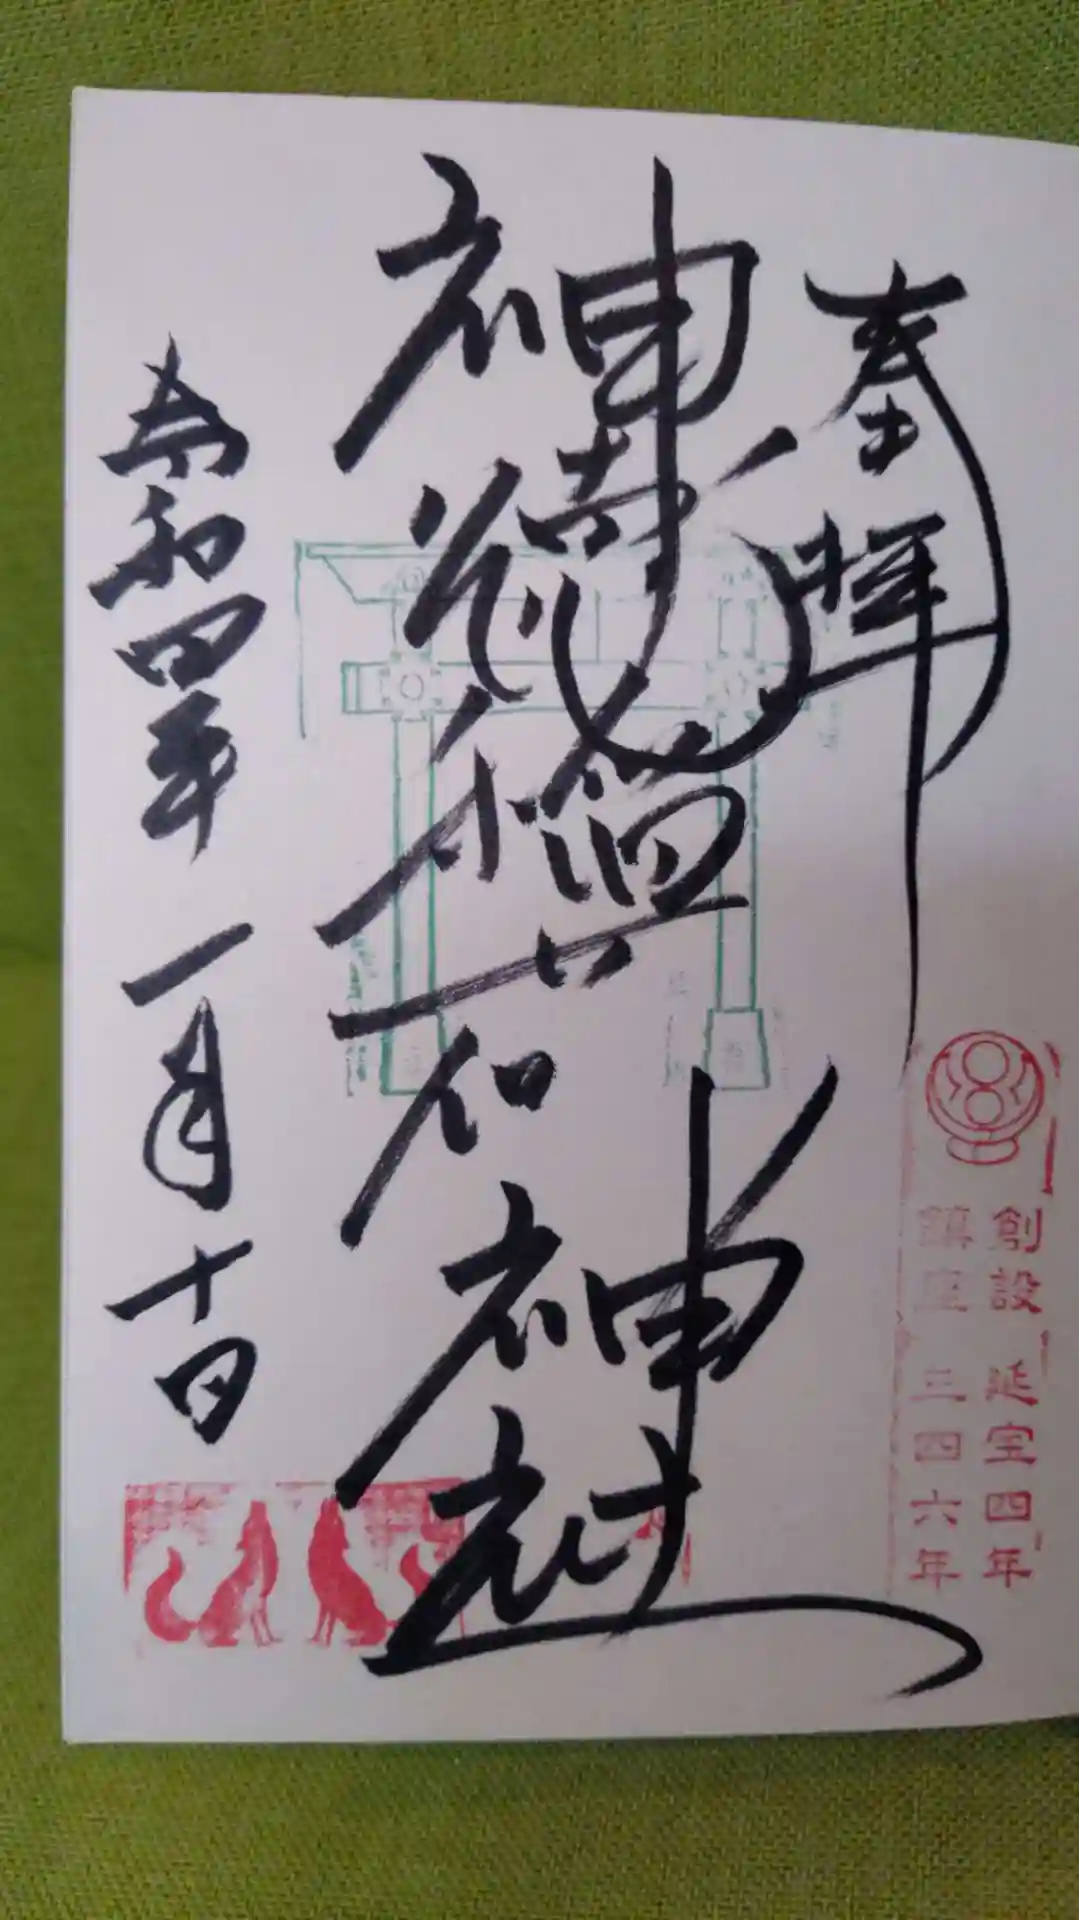 奉拝
創設 延宝四年
鎮座 三四六年
神徳稲荷神社
令和四年 一月十日